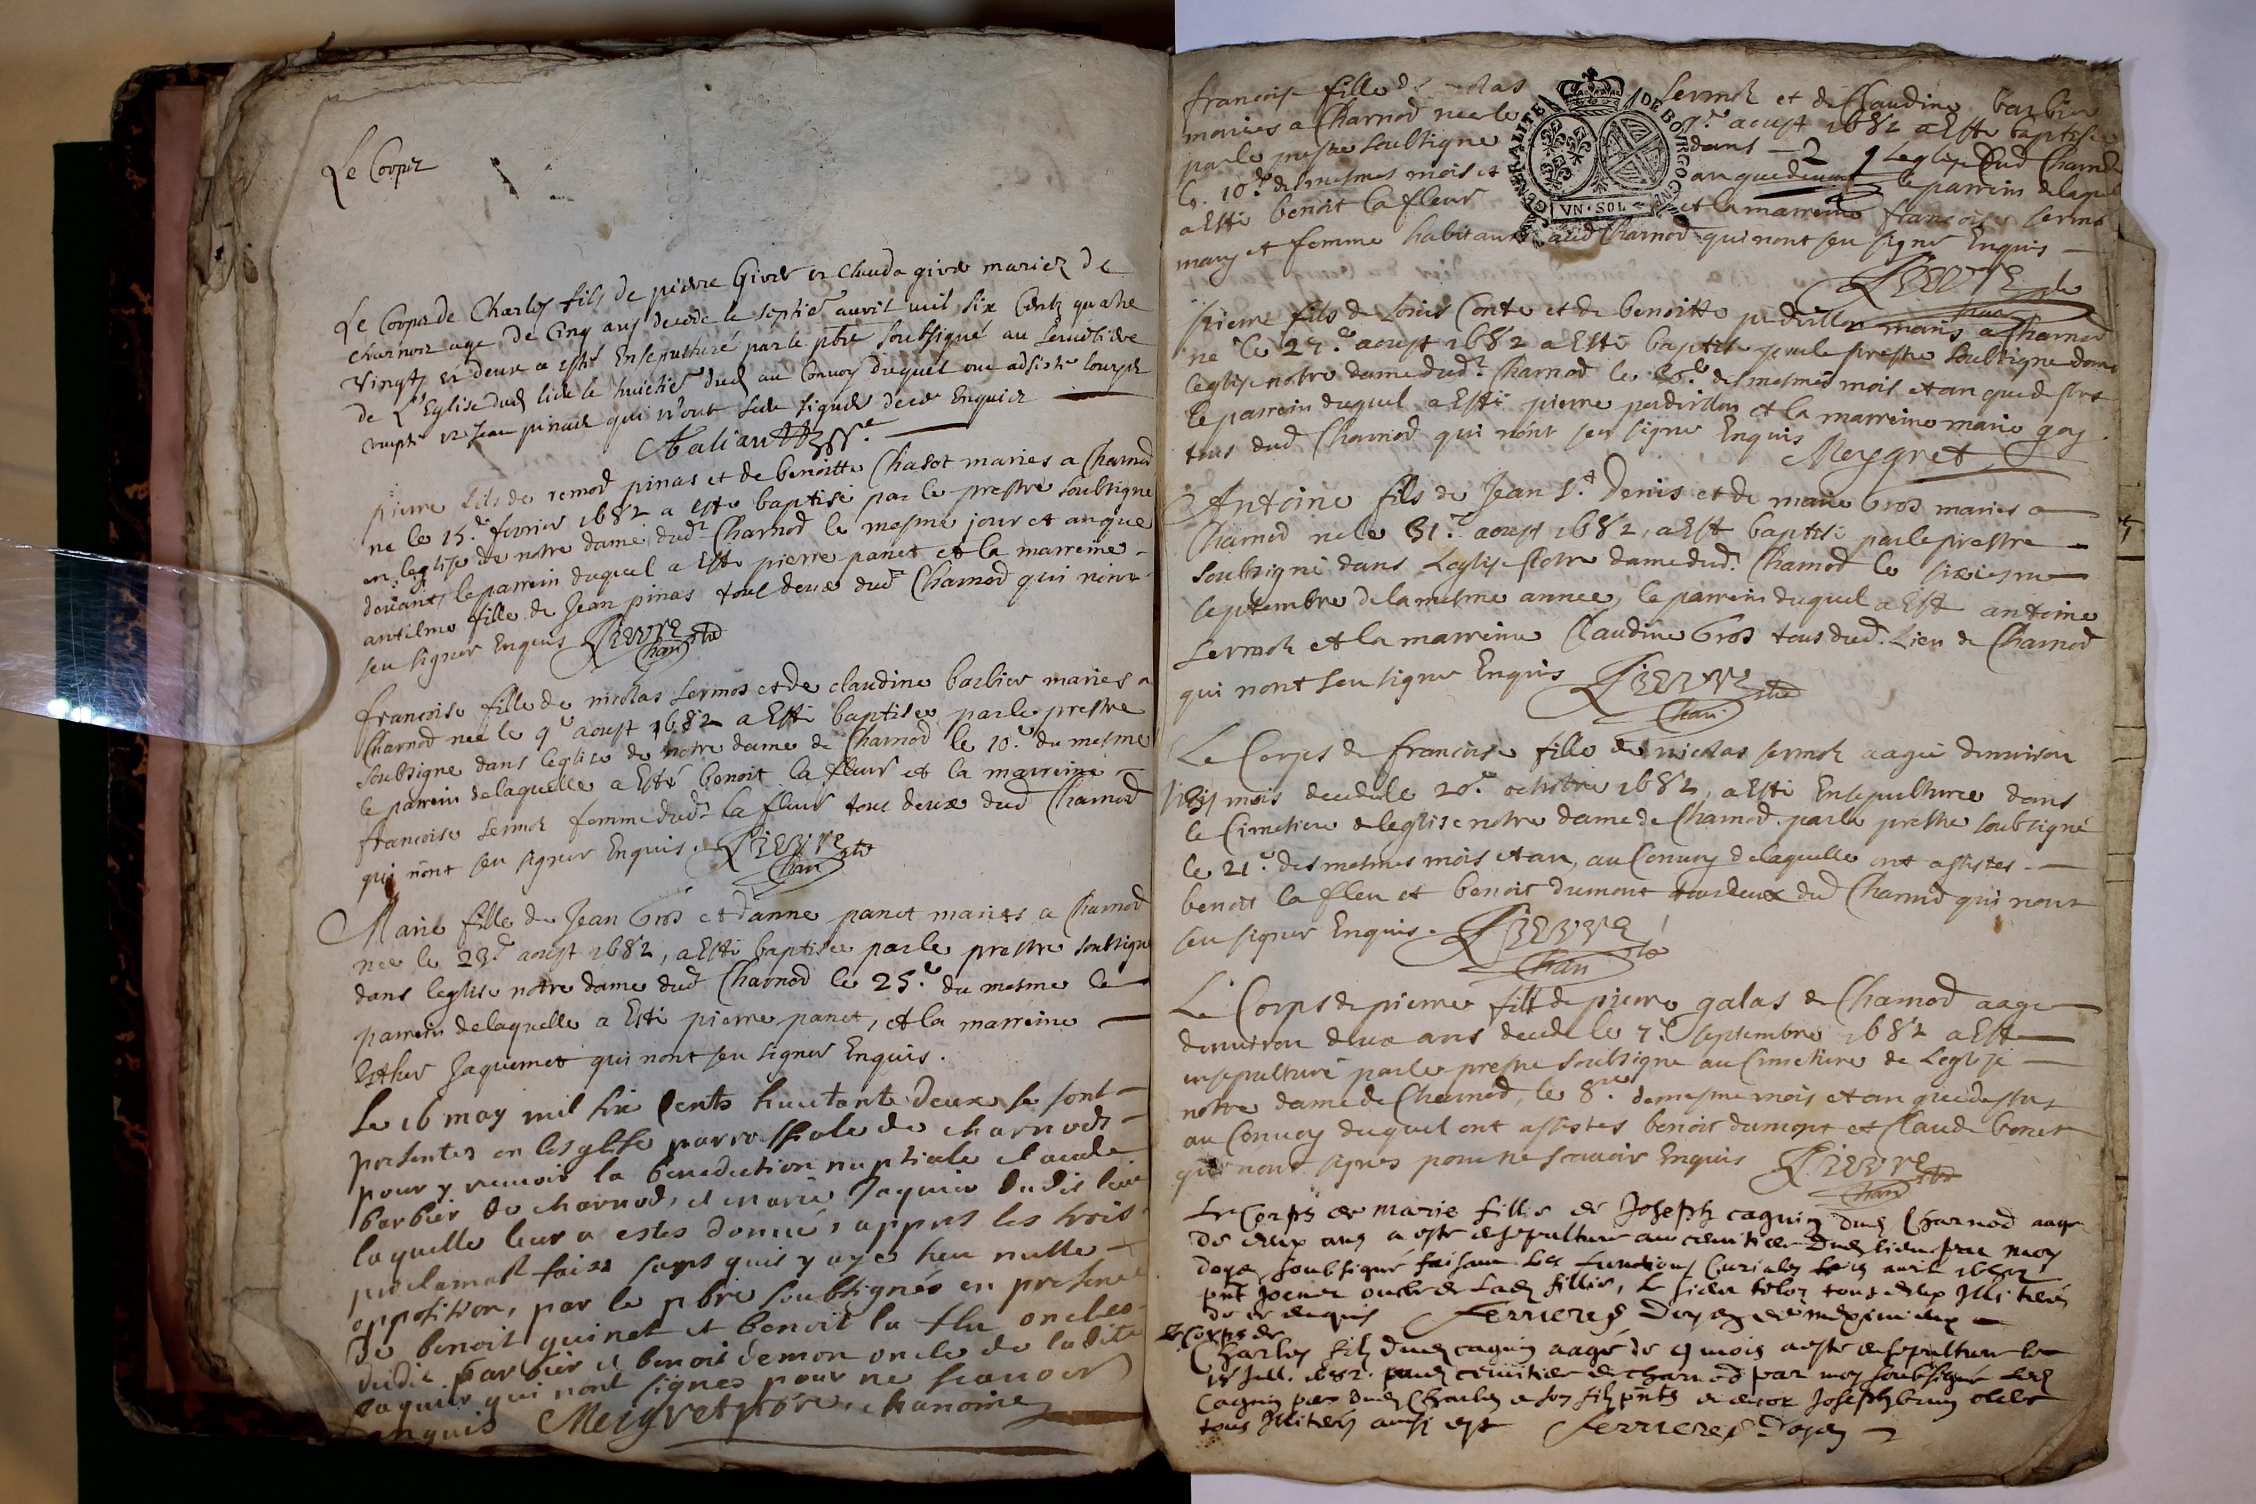 Le Corps
Le Corps de Charles fils de pierre Girod et Clauda girod mariez de
charnoz age de Cinq ans decede le septie avril mil six Centz quatre
vingtz et deux a esté Ensepulturé par le pbre soubsigné au Cimetiere
de L'Eglise dud lieu le huictie dud au Convoy duquel ont adsisté
et Jean pinard qui n'ont sceu signer de ce Enquis
pierre fils de remod pinas et de benoitte Chasot maries a Charnod
ne le 15.e fevrier 1682 a este baptisé par le prestre soubsigne
en leglise de notre dame dudt Charnod le mesme jour et an que
devant, le parrein duquel a Esté pierre panet et la marreine
antelme fille de Jean pinas tous deux dudt Charnod qui n'ont
seu signer Enquis Lievre
Chan
francoise fille de nicolas sermos et de claudine barbier maries a
Charnod nee le 9e aoust 1682 a Esté baptisee par le prestre
soubsigne dans leglise de notre dame de Charnod le 10.e du mesme
le parrein de laquelle a Esté benoit la fleur et la marreine
francoise sermoz femme dudt la fleur tous deux dud Charnod
qui n'ont seu signer Enquis. Lievre
Chan
Marie fille de Jean Gros et d'anne panet maries a Charnod
nee le 23.e aoust 1682, a Esté baptisee par le prestre soubsigne
dans leglise notre dame dud Charnod le 25.e du mesme le
parrein de laquelle a Esté pierre panet, et la marreine
Esther Jaquemet qui nont seu signer Enquis.
Le 16 may mil six Cents huictante deux se sont
presentes en lesglise parrossiale de charnod
pour y recevoir la benediction nuptiale Claude
barbier de charnod, et marie Jaquier dudit lieu
laquelle leur a estes donnée, appres les trois
proclamat faites sans quis y aye heu nulle
opposition, par le pbre soubsignés en presence
de benoit guinet et benoit la fleu oncles
dudit barbier et benoit demon oncle de ladite
Jaquier qui nont signes pour ne scavoir
enquis Meigret pbre. chanoine
francoise fille de nicolas sermoz et de Claudine barbier
maries a Charnod nee le 9.e aoust 1682 a Este baptisee
par le prestre soubsigne dans leglise dud Charnod
le. 10.e des mesmes mois et an que devant le parrein de laquelle
a Esté benoit la fleur et la marreine francoise sermoz
mary et femme habitants aud Charnod qui nont seu signer Enquis
GENERALITE DE BOURGOGNE
VN·SOL
Lievre
Chan
pierre fils de Louis Conte et de benoitte perdrillon maries a Charnod
ne le 27.e aoust 1682 a Esté baptise par le prestre soubsigne dans
leglise notre dame dudt Charnod le des mesmes mois et an que dessus
le parrein duquel a Esté pierre perdrillon et la marreine marie gay
tous dud Charnod qui n'ont seu signer Enquis Meygret
Antoine fils de Jean St Denis et de marie Gros maries a
Charnod ne le 31.e aoust 1682, a Esté baptisé par le prestre
soubsigné dans Leglise Notre dame dudt Charnod le sixiesme
septembre de la mesme annee, le parrein duquel a Esté antoine
sermoz et la marreine Claudine Gros tous dud. Lieu de Charnod
qui nont seu signer Enquis Lievre
Chan.
Le Corps de francoise fille de nicolas sermoz aagée denviron
mois decedee le 20.e octobre 1682, a Esté Ensepulturee dans
le Cimetiere de leglise notre dame de Charnod par le prestre soubsigné
le 21.e des mesmes mois et an, au Convoy de laquelle ont assistes
benoit la fleu et benoit dumont tous deux dud Charnod qui n'ont
seu signer Enquis. Lievre
Chan
Le Corps de pierre fils de pierre galas de Charnod aagé
denviron deux ans decede le 7.e septembre 1682 a Esté
ensepulturé par le prestre soubsigne au Cimetiere de Leglise
notre dame de Charnod, le 8.e de mesme mois et an que dessus
au Convoy duquel ont assistes benoit dumont et Claude bonet
qui n'ont signes pour ne scavoir Enquis Lievre
Chan
Le Corps de marie fille de Joseph cagnin dud Charnod aagee
de deux ans a esté ensepulture au cimitiere dud lieu par moy
doyen soubsigné faisant les functions Curiales avril 1682
pnt oncle de lad fillie, tous deux Illiterés
de ce enquis Ferrieres Doyen de meximieux
Le Corps de
Charles fils dud cagnin aagé de 9 mois a esté ensepulture le
15 Jull. 1682. aud cimitiere de charnod par moy soubsigné led
Cagnin pere dud Charles et son fils pnts et encor Joseph
tous Illiteres ainsi est Ferrieres Doyen